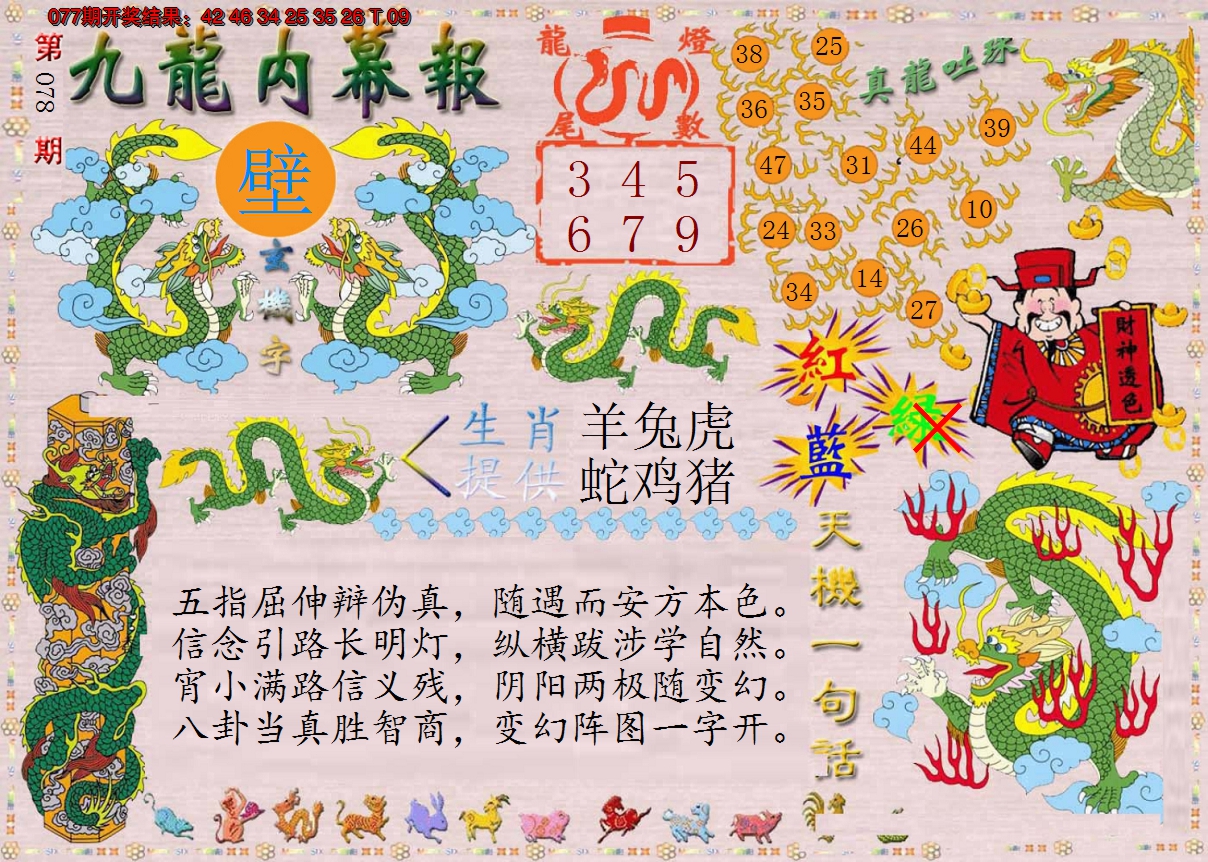 077期开奖结果：42 46 34 25 35 26 T 09
第078期
九龍内幕報
璧
玄機字
龍燈
尾數
3 4 5
6 7 9
真龍吐珠
38
25
36
35
44
39
47
31
10
24
33
26
14
34
27
紅
綠
藍
財神透色
生肖
提供
羊兔虎
蛇鸡猪
天機一句话
五指屈伸辩伪真，随遇而安方本色。
信念引路长明灯，纵横跋涉学自然。
宵小满路信义残，阴阳两极随变幻。
八卦当真胜智商，变幻阵图一字开。